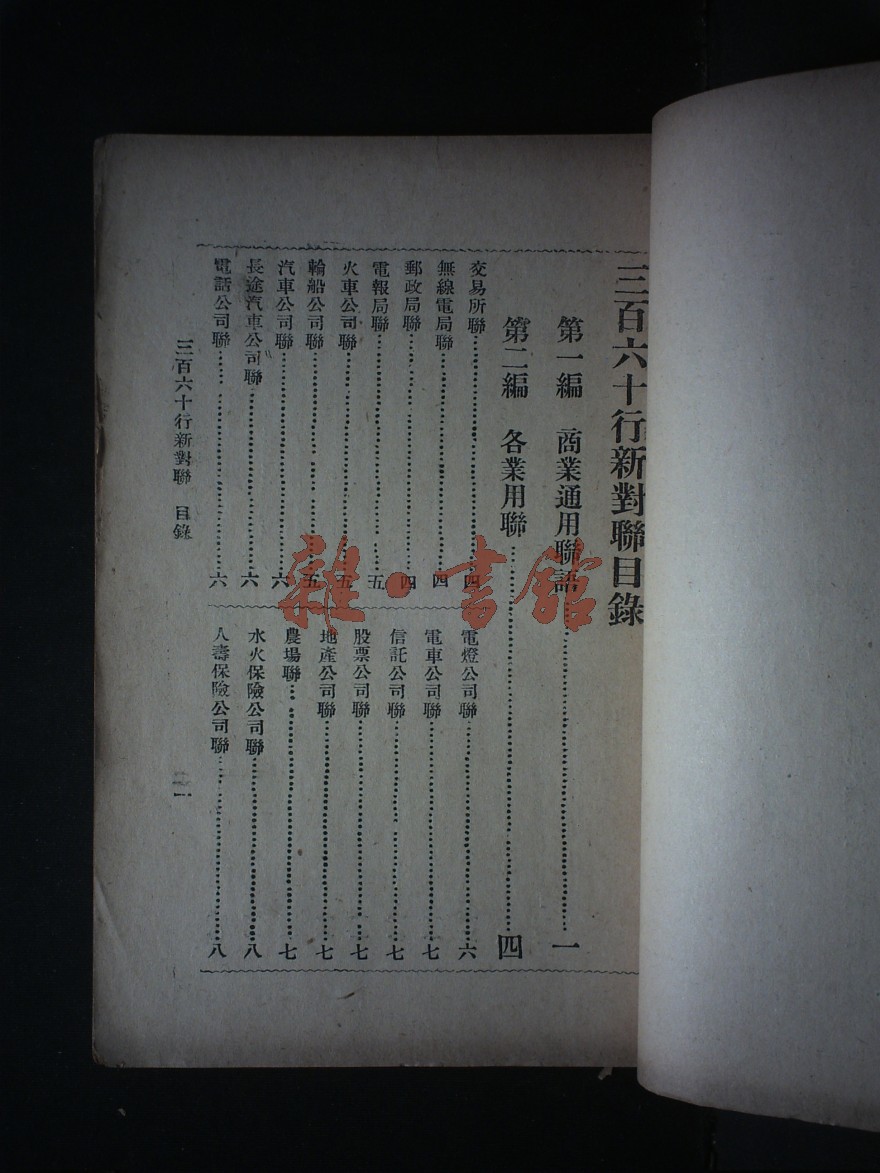 三百六十行新對聯目錄
第一編 商業通用聯語……一
第二編 各業用聯……四
交易所聯……四
無線電局聯……四
郵政局聯……四
電報局聯……五
火車公司聯……五
輪船公司聯……五
汽車公司聯……六
長途汽車公司聯……六
電話公司聯……六
電燈公司聯……六
電車公司聯……七
信託公司聯……七
股票公司聯……七
地產公司聯……七
農場聯……七
水火保險公司聯……八
人壽保險公司聯……八
三百六十行新對聯 目錄
一
雜·書館